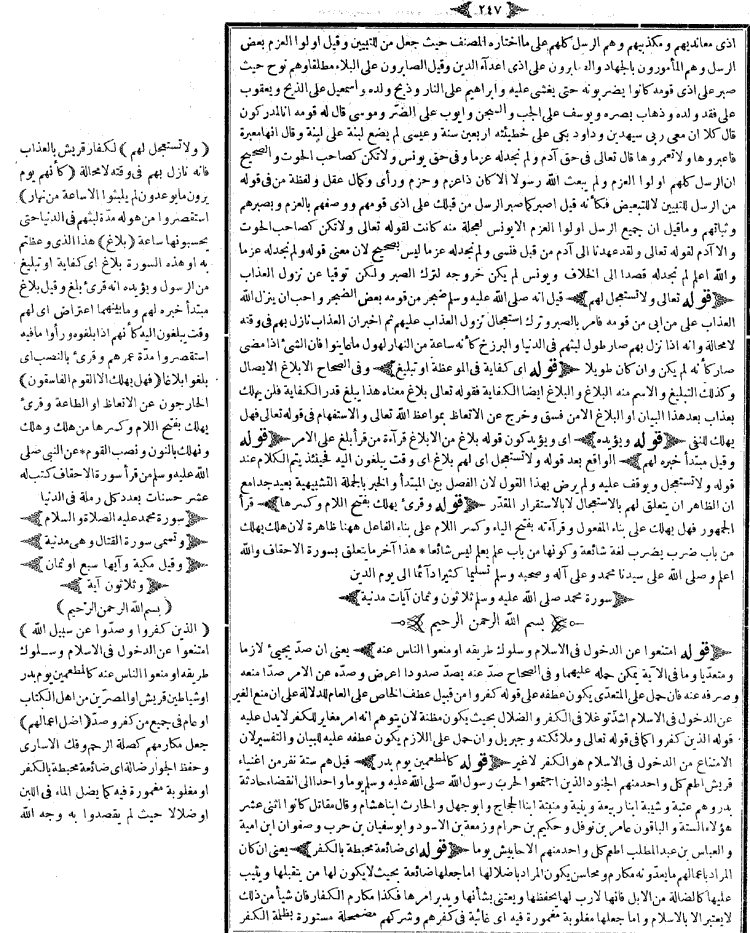 ﴿ ٢٤٧ ﴾
اذى معانديهم ومكذبيهم وهم الرسل كلهم على ما اختاره المصنف حيث جعل من للتبيين وقيل اولوا العزم بعض
الرسل وهم المأمورون بالجهاد والصابرون على اذى اعدآء الدين وقيل الصابرون على البلاء مطلقا وهم نوح حيث
صبر على اذى قومه كانوا يضربونه حتى يغشى عليه وابراهيم على النار وذبح ولده واسمعيل على الذبح ويعقوب
على فقد ولده وذهاب بصره ويوسف على الجب والسجن وايوب على الضر وموسى قال له قومه انا لمدركون
قال كلا ان معى ربى سيهدين وداود بكى على خطيئته اربعين سنة وعيسى لم يضع لبنة على لبنة وقال انها معبرة
فاعبروها ولا تعمروها قال تعالى فى حق آدم ولم نجد له عزما وفى حق يونس ولا تكن كصاحب الحوت والصحيح
ان الرسل كلهم اولوا العزم ولم يبعث الله رسولا الا كان ذا عزم وحزم ورأى وكمال عقل ولفظة من فى قوله
من الرسل للتبيين لا للتبعيض فكأنه قيل اصبر كما صبر الرسل من قبلك على اذى قومهم ووصفهم بالعزم وبصبرهم
وثباتهم وما قيل ان جميع الرسل اولوا العزم الا يونس لعجلة منه كانت لقوله تعالى ولا تكن كصاحب الحوت
والا آدم لقوله تعالى ولقد عهدنا الى آدم من قبل فنسى ولم نجد له عزما ليس بصحيح لان معنى قوله ولم نجد له عزما
والله اعلم لم نجد له قصدا الى الخلاف ويونس لم يكن خروجه لترك الصبر ولكن توقيا عن نزول العذاب
﴿ قوله تعالى ولا تستعجل لهم ﴾ قيل انه صلى الله عليه وسلم ضجر من قومه بعض الضجر واحب ان ينزل الله
العذاب على من ابى من قومه فامر بالصبر وترك استعجال نزول العذاب عليهم ثم اخبر ان العذاب نازل بهم فى وقته
لا محالة وانه اذا نزل بهم صار طول لبثهم فى الدنيا والبرزخ كأنه ساعة من النهار لهول ما عاينوا فان الشئ اذا مضى
صار كأنه لم يكن وان كان طويلا ﴿ قوله اى كفاية فى الموعظة او تبليغ ﴾ وفى الصحاح الابلاغ الايصال
وكذلك التبليغ والاسم منه البلاغ والبلاغ ايضا الكفاية فقوله تعالى بلاغ معناه هذا يبلغ قدر الكفاية فلن يهلك
بعذاب بعد هذا البيان او البلاغ الا من فسق وخرج عن الاتعاظ بمواعظ الله تعالى والاستفهام فى قوله تعالى فهل
يهلك للنفى ﴿ قوله ويؤيده ﴾ اى ويؤيد كون قوله بلاغ من الابلاغ قرآءة من قرأ بلغ على الامر ﴿ قوله
وقيل مبتدأ خبره لهم ﴾ الواقع بعد قوله ولا تستعجل اى لهم بلاغ اى وقت يبلغون اليه فحينئذ يتم الكلام عند
قوله ولا تستعجل ويوقف عليه ولم يرض بهذا القول لان الفصل بين المبتدأ والخبر بالجملة التشبيهية بعيد جدا مع
ان الظاهر ان يتعلق لهم بالاستعجال لا بالاستقرار المقدر ﴿ قوله وقرئ يهلك بفتح اللام وكسرها ﴾ قرأ
الجمهور فهل يهلك على بناء المفعول وقرآءته بفتح الياء وكسر اللام على بناء الفاعل ههنا ظاهرة لان هلك يهلك
من باب ضرب يضرب لغة شائعة وكونها من باب علم يعلم ليس شائعا * هذا آخر ما يتعلق بسورة الاحقاف والله
اعلم وصلى الله على سيدنا محمد وعلى آله وصحبه وسلم تسليما كثيرا دآئما الى يوم الدين
﴿ سورة محمد صلى الله عليه وسلم ثلاثون وثمان آيات مدنية ﴾
﴿ بسم الله الرحمن الرحيم ﴾
﴿ قوله امتنعوا عن الدخول فى الاسلام وسلوك طريقه او منعوا الناس عنه ﴾ يعنى ان صد يجيئ لازما
ومتعديا وما فى الآية يمكن حمله عليهما وفى الصحاح صد عنه يصد صدودا اعرض وصده عن الامر صدا منعه
وصرفه عنه فان حمل على المتعدى يكون عطفه على قوله كفروا من قبيل عطف الخاص على العام للدلالة على ان منع الغير
عن الدخول فى الاسلام اشد توغلا فى الكفر والضلال بحيث يكون مظنة لان يتوهم انه امر مغاير للكفر لا يدل عليه
قوله الذين كفروا كما فى قوله تعالى وملائكته وجبريل وان حمل على اللازم يكون عطفه عليه للبيان والتفسير لان
الامتناع من الدخول فى الاسلام هو الكفر لا غير ﴿ قوله كالمطعمين يوم بدر ﴾ قيل هم ستة نفر من اغنياء
قريش اطعم كل واحد منهم الجنود الذين اجتمعوا لحرب رسول الله صلى الله عليه وسلم يوما واحدا الى انقضاء حادثة
بدر وهم عتبة وشيبة ابنا ربيعة ونبيه ومنبه ابنا الحجاج وابو جهل والحارث ابنا هشام وقال مقاتل كانوا اثنى عشر
هؤلاء الستة والباقون عامر بن نوفل وحكيم بن حرام وزمعة بن الاسود وابو سفيان بن حرب وصفوان ابن امية
والعباس بن عبد المطلب اطعم كل واحد منهم الاحابيش يوما ﴿ قوله اى ضائعة محبطة بالكفر ﴾ يعنى ان كان
المراد باعمالهم ما يعدونه مكارم ومحاسن يكون المراد باضلالها اما جعلها ضائعة بحيث لا يكون لها من يتقبلها ويثيب
عليها كالضالة من الابل فانها لا رب لها يحفظها ويعتنى بشأنها ويدبر امرها فكذا مكارم الكفار فان شيأ من ذلك
لا يعتبر الا بالاسلام واما جعلها مغلوبة مغمورة فيه اى غائبة فى كفرهم وشركهم مضمحلة مستورة بظلمة الكفر
( ولا تستعجل لهم ) لكفار قريش بالعذاب
فانه نازل بهم فى وقته لا محالة ( كأنهم يوم
يرون ما يوعدون لم يلبثوا الا ساعة من نهار )
استقصروا من هوله مدة لبثهم فى الدنيا حتى
يحسبونها ساعة ( بلاغ ) هذا الذى وعظتم
به او هذه السورة بلاغ اى كفاية او تبليغ
من الرسول ويؤيده انه قرئ بلغ وقيل بلاغ
مبتدأ خبره لهم وما بينهما اعتراض اى لهم
وقت يبلغون اليه كأنهم اذا بلغوه ورأوا ما فيه
استقصروا مدة عمرهم وقرئ بالنصب اى
بلغوا بلاغا ( فهل يهلك الا القوم الفاسقون )
الخارجون عن الاتعاظ او الطاعة وقرئ
يهلك بفتح اللام وكسرها من هلك وهلك
ونهلك بالنون ونصب القوم * عن النبى صلى
الله عليه وسلم من قرأ سورة الاحقاف كتب له
عشر حسنات بعدد كل رملة فى الدنيا
﴿ سورة محمد عليه الصلاة والسلام ﴾
﴿ وتسمى سورة القتال وهى مدنية ﴾
﴿ وقيل مكية وآيها سبع او ثمان ﴾
﴿ وثلاثون آية ﴾
( بسم الله الرحمن الرحيم )
( الذين كفروا وصدوا عن سبيل الله )
امتنعوا عن الدخول فى الاسلام وسلوك
طريقه او منعوا الناس عنه كالمطعمين يوم بدر
او شياطين قريش او المصرين من اهل الكتاب
او عام فى جميع من كفر وصد ( اضل اعمالهم )
جعل مكارمهم كصلة الرحم وفك الاسارى
وحفظ الجوار ضالة اى ضائعة محبطة بالكفر
او مغلوبة مغمورة فيه كما يضل الماء فى اللبن
او ضلالا حيث لم يقصدوا به وجه الله